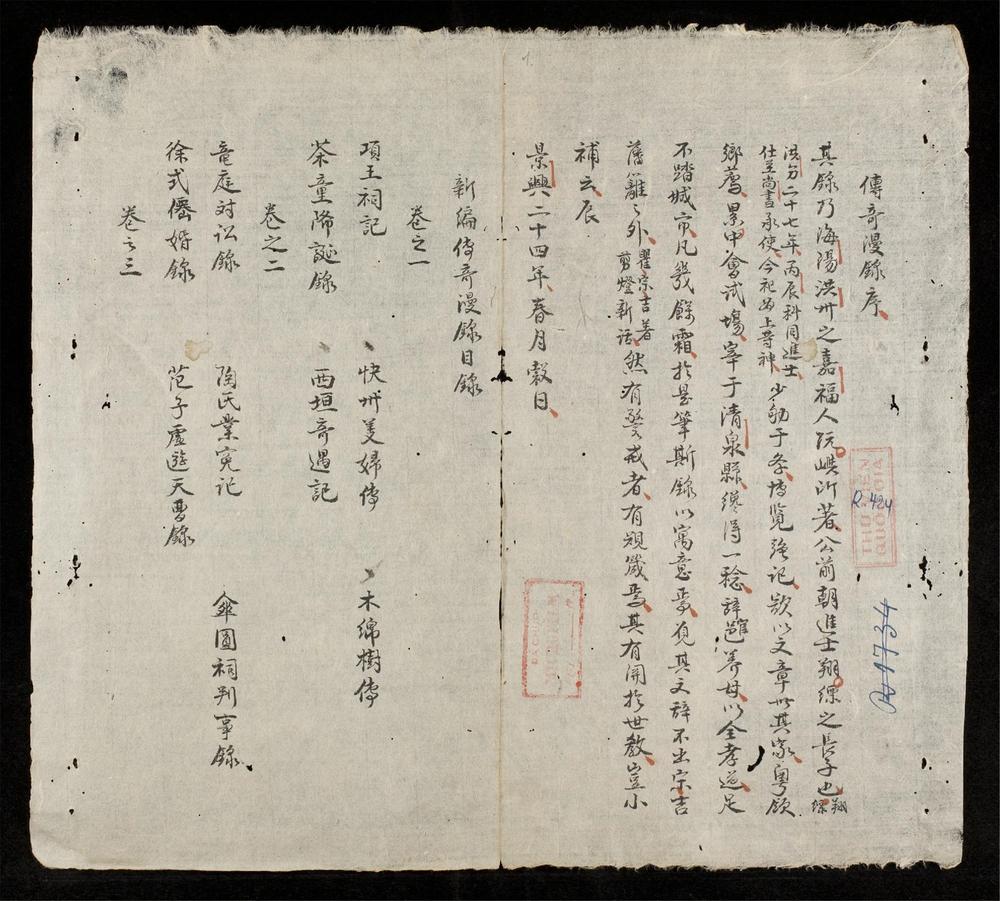 傳奇漫錄序
其錄乃海陽洪州之嘉福人阮嶼所著公前朝進士翔縹之長子也翔縹
洪穷二十七年丙辰科同進士
仕至尚書承使今祀为上等神
少劬于李博覽強記欵以文章世其家粤領
鄉薦累中會試場宰于清泉縣纔得一稔辞邑养母以全孝道足
不踏城市凡幾餘霜於是筆斯錄以寓意焉覓其文辞不出宗吉
藩籬之外
瞿宗吉著
剪燈新話
然有警戒者有規箴焉其有関於世教豈小
補云辰
景興二十四年春月穀日
新編传奇漫錄目錄
卷之一
項王祠記 快州美婦传 木綿樹传
茶童降誕錄 西垣奇遇記
卷之二
竜庭対訟錄 陶氏業寃记 傘圓祠判事錄
徐式僊婚錄 范子虛遊天曹錄
卷之三
THƯ VIỆN
QUỐC GIA
R.424
R.1734